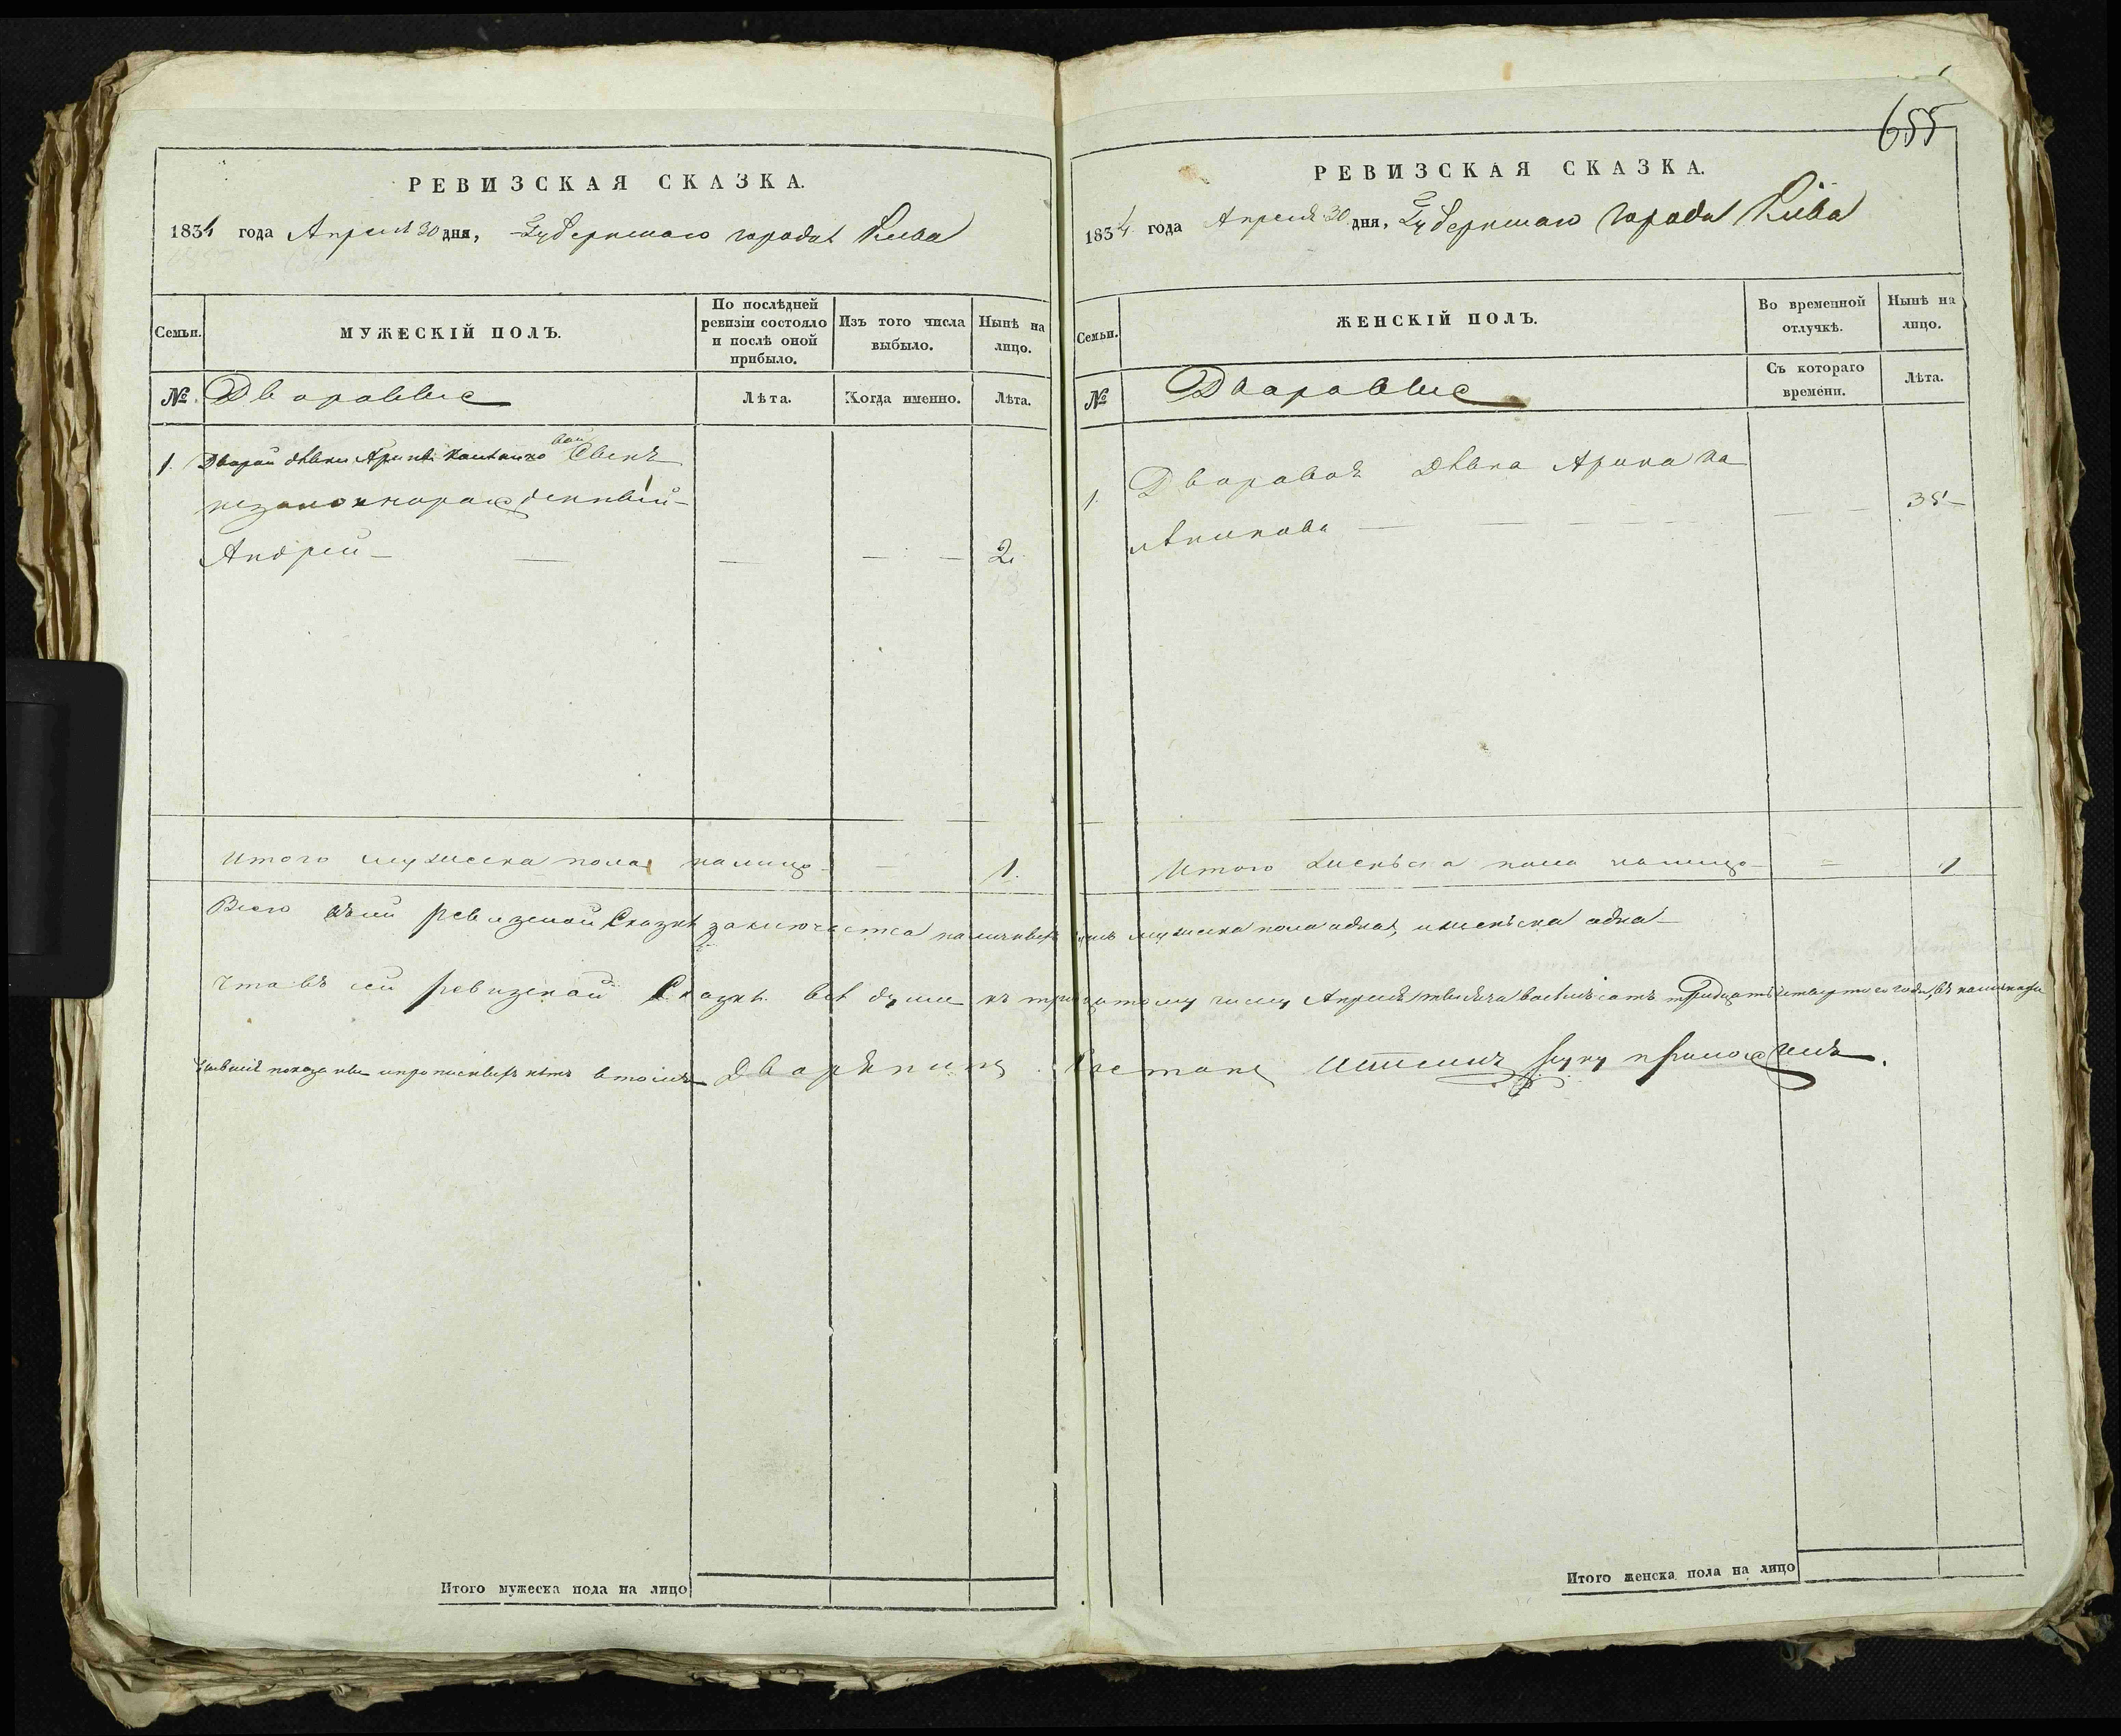 РЕВИЗСКАЯ СКАЗКА.
1834 года Апреля 30 дня, Губернскаго города Киева
Семьи.
МУЖЕСКІЙ ПОЛЪ.
По послѣдней ревизіи состояло и послѣ оной прибыло.
Изъ того числа выбыло.
Нынѣ на лицо.
№
Дворовые
Лѣта.
Когда именно.
Лѣта.
1. Двороой дѣвки Арины
незаконнорожденный
Андрей — — — — — 2
Итого мужеска пола налицо — 1.
655
РЕВИЗСКАЯ СКАЗКА.
1834 года Апреля 30 дня, Губернскаго города Кіева
Семьи.
ЖЕНСКІЙ ПОЛЪ.
Во временной отлучкѣ.
Нынѣ на лицо.
№
Дворовые
Съ котораго времени.
Лѣта.
1. Дворовая Дѣвка Арина Ка
— — — — — 35
Итого женска пола налицо — 1
Всего въ сей ревизской Сказке заключается наличныхъ душъ мужеска пола одна, и женска одна —
Что въ сей ревизской Сказке все души къ тридцатому числу Апреля тысяча восемьсотъ тридцать четвертаго года, въ
показаны и прописныхъ нетъ в томъ Дворянинъ руку приложилъ.
Итого мужеска пола на лицо
Итого женска пола на лицо